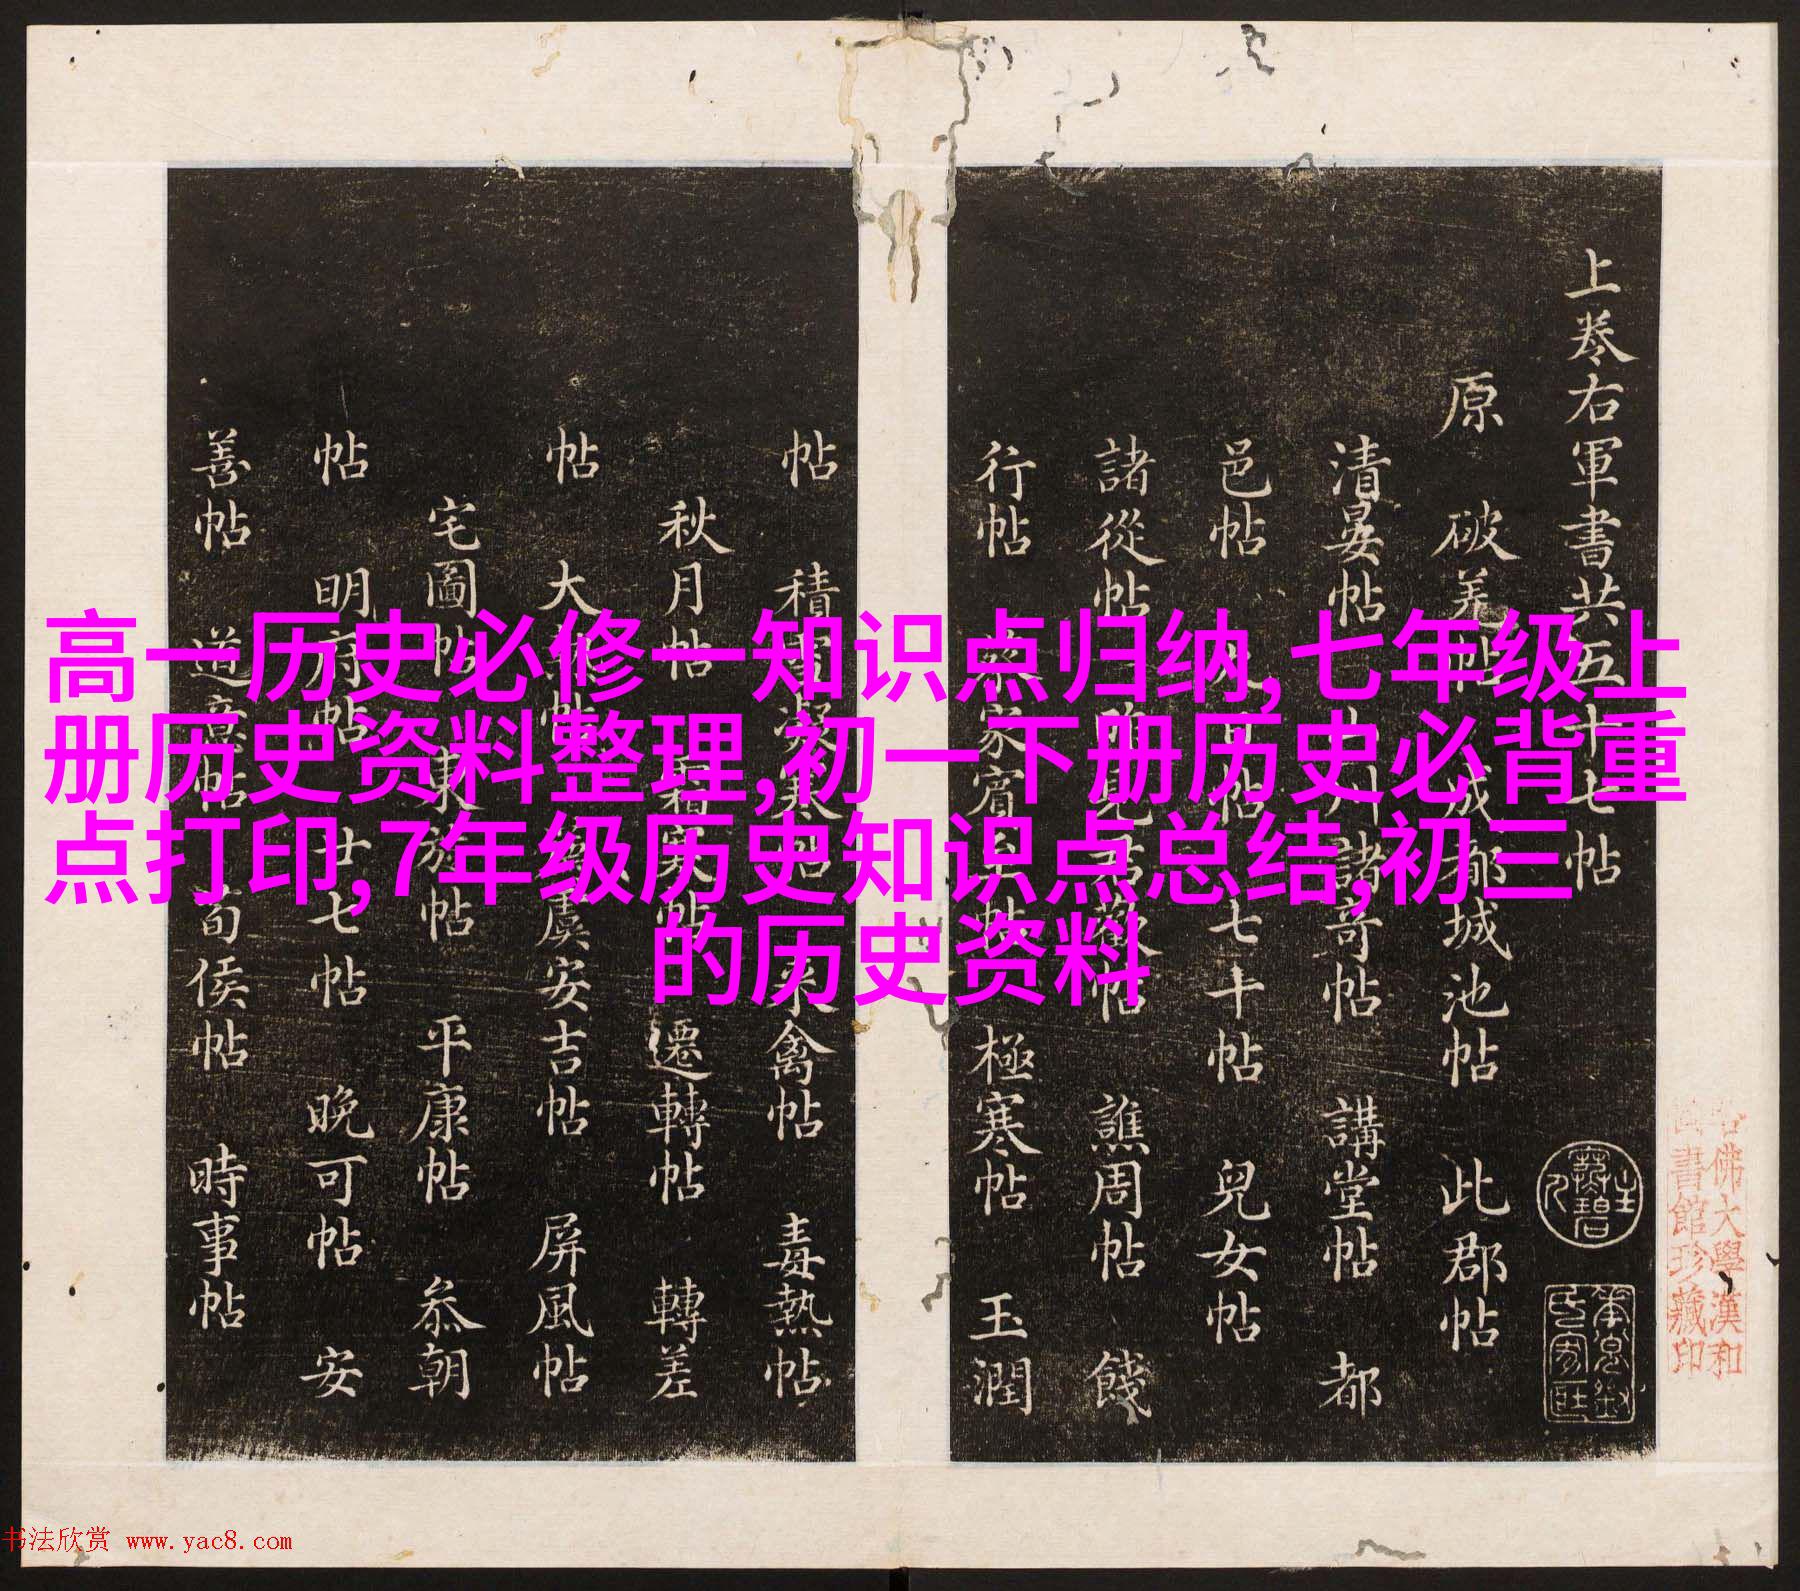 高一历史必修一知识点归纳,七年级上
册历史资料整理,初一下册历史必背重
点打印,7年级历史知识点总结,初三
的历史资料
上卷右軍書共五十七帖
原 破羌帖 成都城池帖 此郡帖
清晏帖 諸奇帖 講堂帖 都
邑帖 七十帖 兒女帖
諸從帖 譙周帖 餞
行帖 極寒帖 玉潤
帖 積 來禽帖 毒熱帖
秋月帖 遷轉帖 轉差
帖 大 虞安吉帖 屏風帖
宅圖帖 東旅帖 平康帖 叅朝
帖 明府帖 廿七帖 晚可帖 安
善帖 荀侯帖 時事帖
佛大學漢和
書館珍藏印
书法欣赏 www.yac8.com